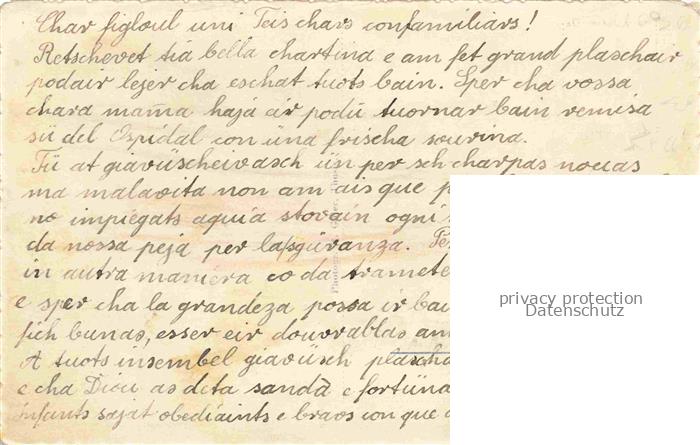 Char figlöul uni Teis chars confamiliars!
Retschevet tia bella chartina e am fet grand plaschair
podair lejer cha eschat tuots bain. Sper cha vossa
chara mama hajá eir podü tuornar bain remisa
sü del Ospidal con üna frischa sourina.
Tü at giavüscheivasch ün per schcharpas nouvas
ma malavita non am ais que p
no impiegats aquia stovain ogni
da nossa pejá per la sgüranza. Per
in autra maniera co da tramete
e sper cha la grandeza possa ir bai
fich bunas, esser eir douvrablas am
A tuots insembel giavüsch plascha
e cha Dieu as deta sandà e fortüna
infants sajat obediaints e braos con que
privacy protection
Datenschutz